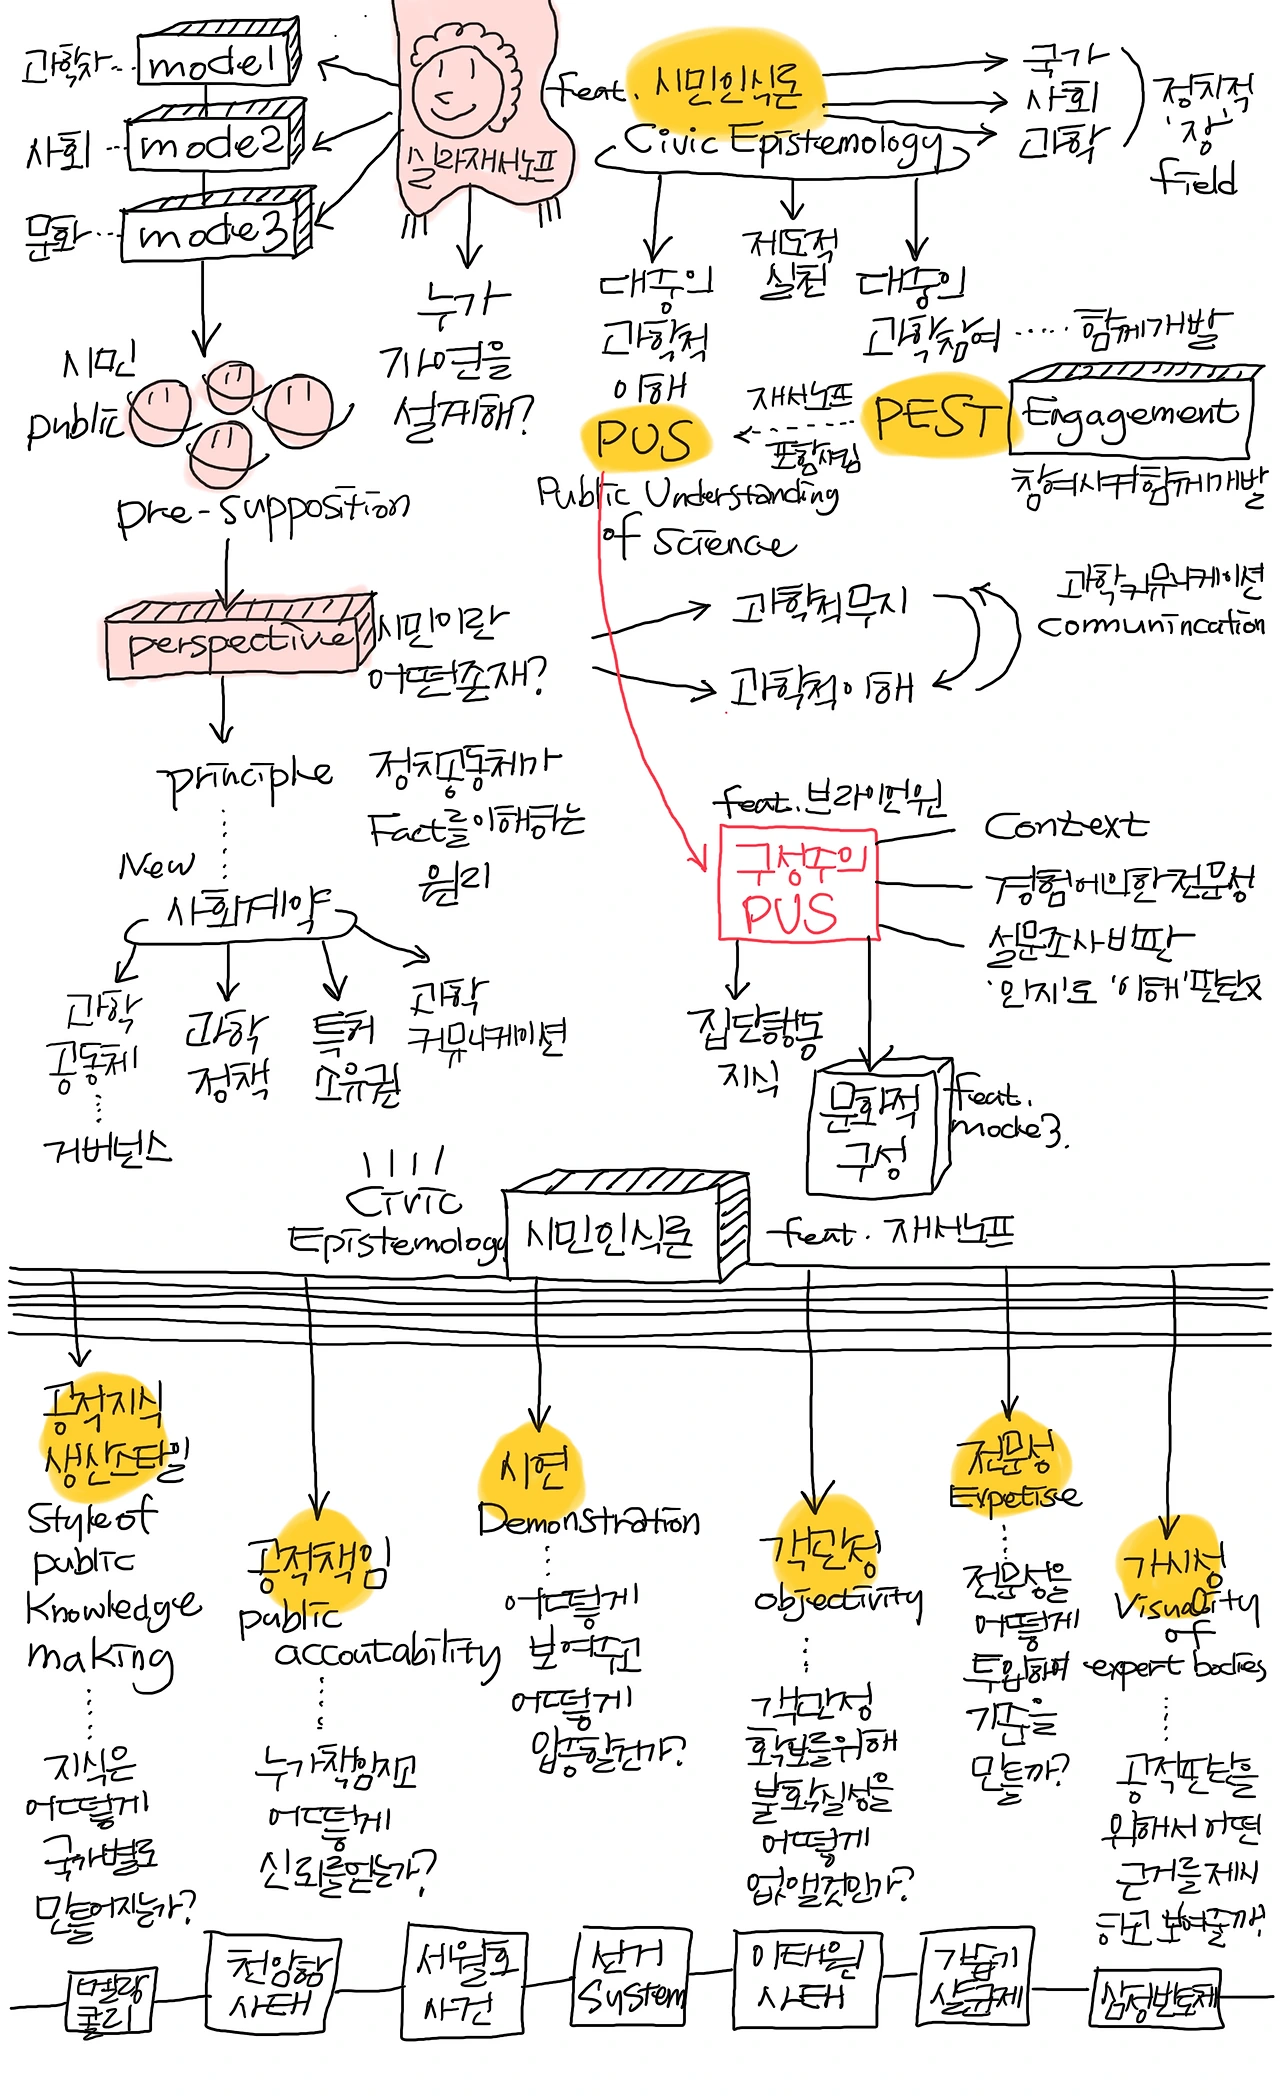 과학자
mode1
사회
mode2
문화
mode3
실라재서노프
feat. 시민인식론
Civic Epistemology
국가
사회
과학
정치적
'장'
field
누가
자연을
설계해?
대중의
과학적
이해
PUS
Public Understanding
of Science
제도적
실천
대중의
과학참여
함께개발
재서노프
포함시킴
PEST
Engagement
참여시켜함께개발
시민
public
pre-supposition
perspective
시민이란
어떤존재?
과학적무지
과학적이해
과학커뮤니케이션
communincation
principle
정치공동체가
Fact를이해하는
원리
New
사회계약
과학
공동체
거버넌스
과학
정책
특허
소유권
과학
커뮤니케이션
feat. 브라이언윈
구성주의
PUS
Context
경험에의한전문성
설문조사비판
'인지'로 '이해'판단x
집단행동
지식
문화적
구성
feat.
mode3.
Civic
Epistemology
시민인식론
feat. 재서노프
공적지식
생산스타일
Style of
public
Knowledge
making
지식은
어떻게
국가별로
만들어지는가?
공적책임
public
accoutability
누가책임지고
어떻게
신뢰를얻는가?
시연
Demonstration
어떻게
보여주고
어떻게
입증할건가?
객관성
objectivity
객관성
확보를위해
불확실성을
어떻게
없앨것인가?
전문성
Expetise
전문성을
어떻게
투입하여
기준을
만들까?
가시성
Visuality
of
expert bodies
공적판단을
위해서어떤
근거를제시
하고보여줄까?
멜랑
콜리
천암함
사태
세월호
사건
선거
System
이태원
사태
가습기
살균제
삼성반도체